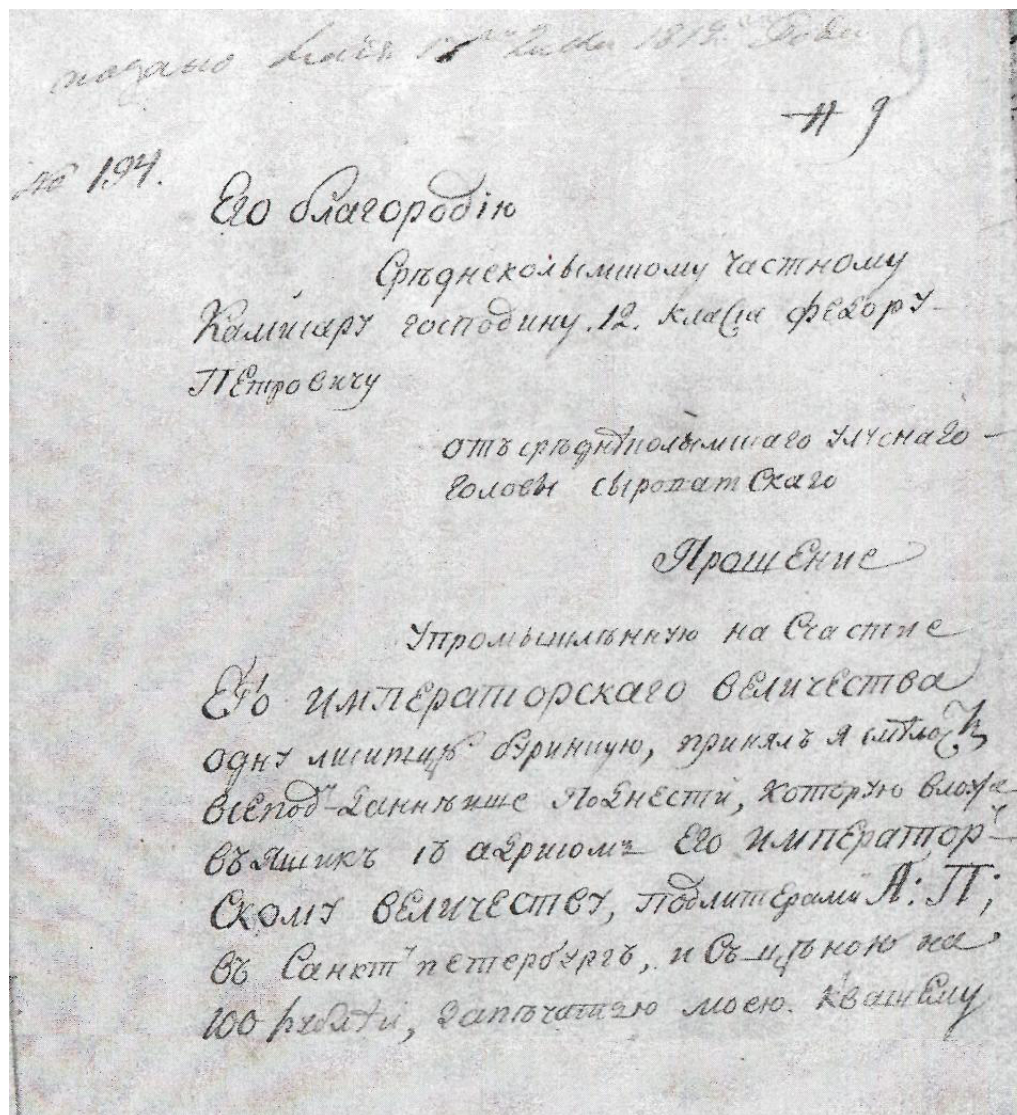 подано Маія 1812 Года
9
№ 9
№ 194.
Его благородію
Срѣднеколымскому частному
Камисару господину 12. класса федору
Петровичу
отъ срѣднѣколымскаго улуснаго
головы сыроватскаго
Прошение
Упромышлѣнную на Счастие
Его императорскаго величества
одну лиситцу бурннкую, принялъ я смѣлость
всеподданнѣише поднести, которую вложа
въ ящикъ съ адрисомъ Его император-
скому величеству, подлитерами А: П;
въ Санктпетербургъ, и съ цѣною на
100 рублѣй, запѣчатью моею. квашему